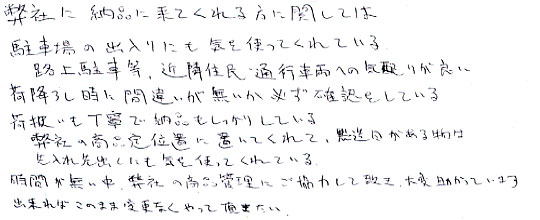 弊社に納品に来てくれる方に関しては
駐車場の出入りにも気を使ってくれている
路上駐車等、近隣住民・通行車両への気配りが良い
荷降ろし時に間違いが無いか必ず確認をしている
荷扱いも丁寧で納品もしっかりしている
弊社の商品定位置に置いてくれて、配送日がある物は
先入れ先出しにも気を使ってくれている.
時間が無い中、弊社の商品管理にご協力して頂き、大変助かっています
出来ればこのまま変更なくやって頂きたい.